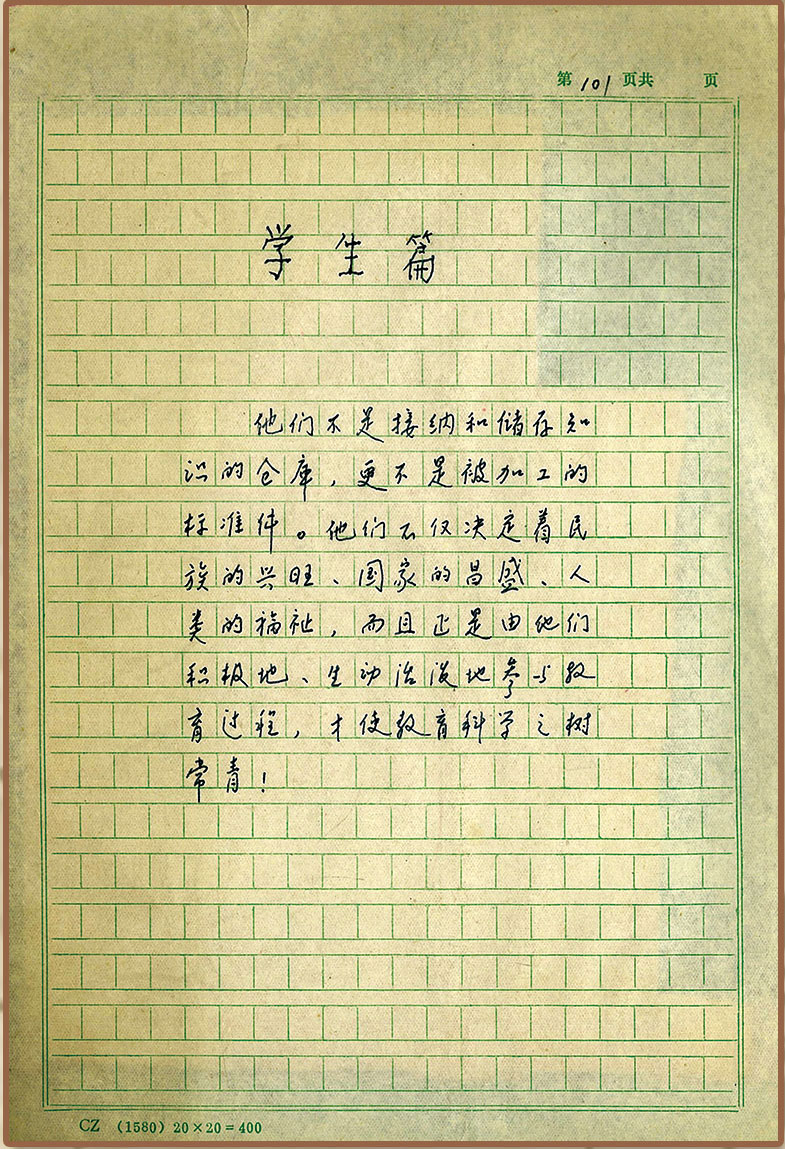 第 101 页共 页
学生篇
他们不是接纳和储存知
识的仓库，更不是被加工的
标准件。他们不仅决定着民
族的兴旺、国家的昌盛、人
类的福祉，而且正是由他们
积极地、生动活泼地参与教
育过程，才使教育科学之树
常青！
CZ (1580) 20×20=400